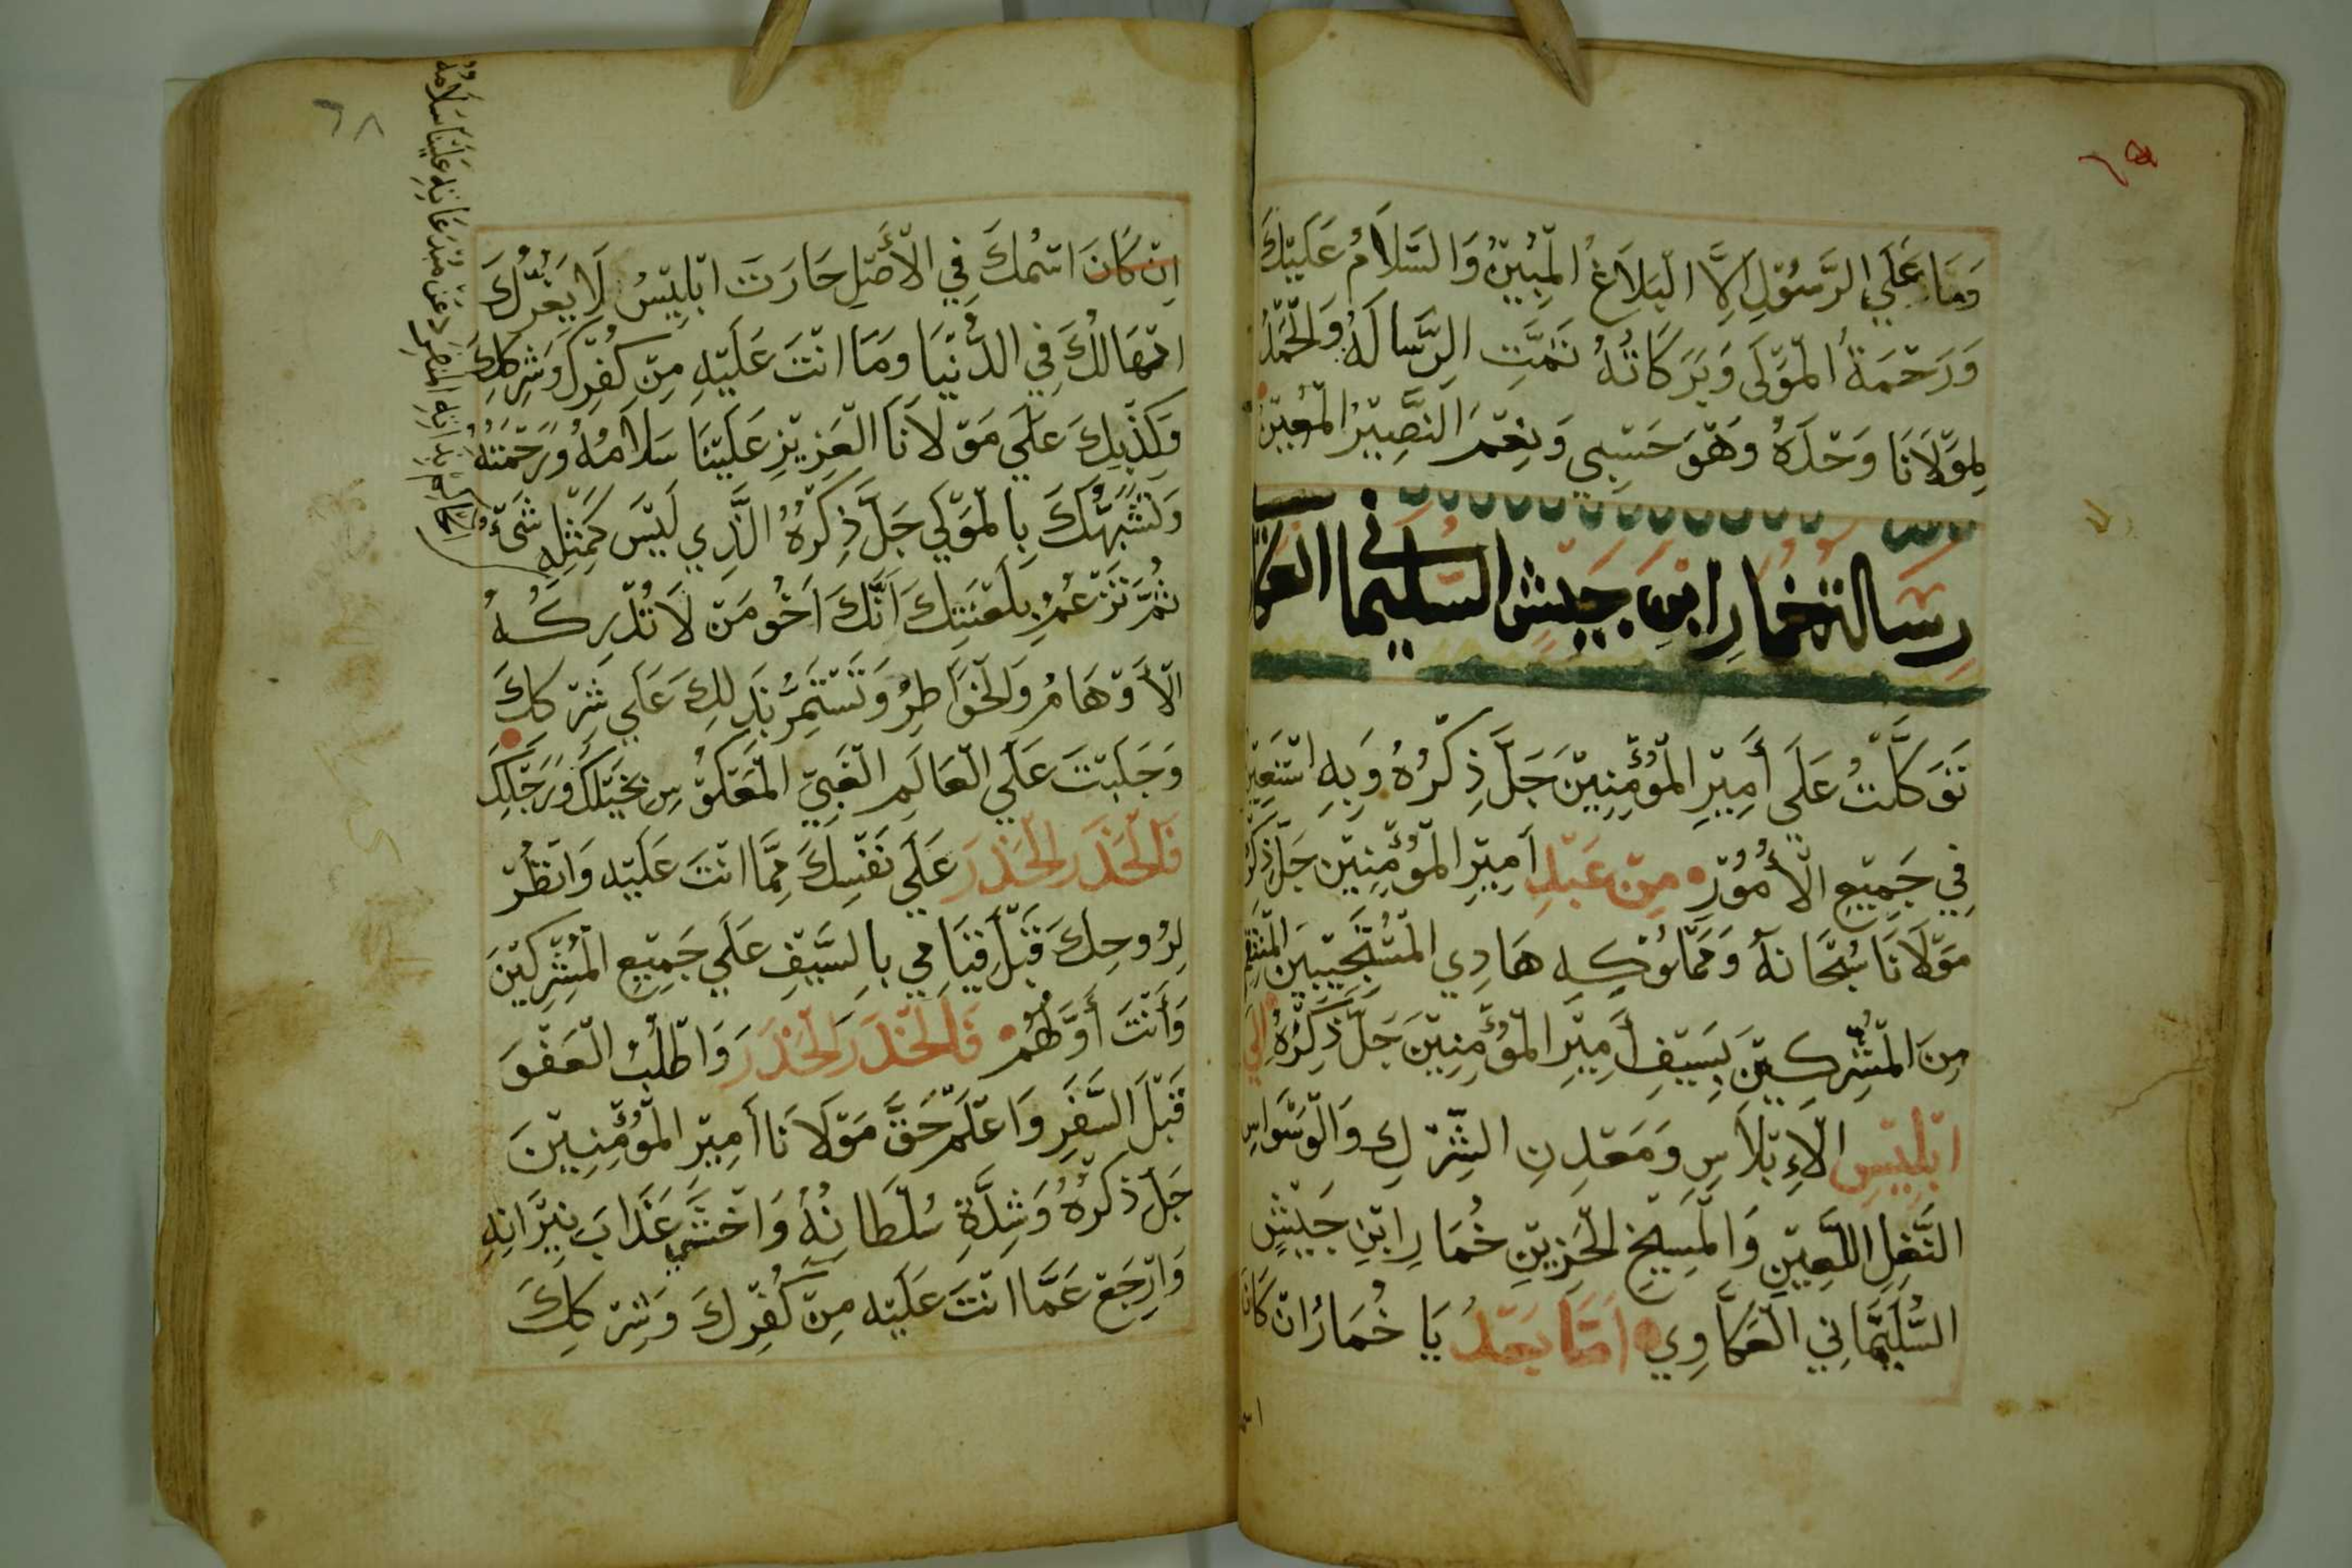 وَمَا عَلَي الرَّسُوْلِ اِلَّا الْبَلَاغُ الْمُبِيْنُ وَالسَّلَامُ عَلَيْكَ
وَرَحْمَةُ الْمَوْلَى وَبَرَكَاتُهُ تَمَّتِ الرِّسَالَهْ وَالْحَمْدُ
لِمَوْلَانَا وَحْدَهُ وَهْوَ حَسْبِي وَنِعْمَ النَّصِيْرُ الْمُعِيْنُ
رسالة خمار ابن جيش السليماني العكا
تَوَكَّلْتُ عَلَى أَمِيْرِ الْمُؤْمِنِيْنَ جَلَّ ذِكْرُهُ وَبِهِ اسْتَعِيْنُ
فِي جَمِيْعِ الْأُمُوْرِ مِنْ عَبْدِ اَمِيْرِ الْمُؤْمِنِيْنَ جَلَّ ذِكْرُ
مَوْلَانَا سُبْحَانَهُ وَمَمْلُوْكِهِ هَادِي الْمُسْتَجِيْبِيْنَ الْمُنْتَقِم
مِنَ الْمُشْرِكِيْنَ بِسَيْفِ أَمِيْرِ الْمُؤْمِنِيْنَ جَلَّ ذِكْرُهُ إِلَي
ابْلِيْسِ الْإِبْلَاسِ وَمَعْدِنِ الشِّرْكِ وَالْوَسْوَاسِ
النَّغِلِ اللَّعِيْنِ وَالْمَسِيْخِ الْحَزِيْنِ خُمَارِ ابْنِ جَيْشٍ
السُّلَيْمَانِي الْعَكَّاوِي اَمَّا بَعْدُ يَا خُمَارُ انْ كَانَ
اِنْ كَانَ اسْمُكَ فِي الْأَصْلِ حَارَتَ ابْلِيْسُ لَا يَغُرُّكَ
امْهَالُكَ فِي الدُّنْيَا وَمَا انْتَ عَلَيْهِ مِنْ كُفْرِكَ وَشِرْكِكَ
وَكَذِبِكَ عَلَي مَوْلَانَا الْعَزِيْزِ عَلَيْنَا سَلَامُهُ وَرَحْمَتُهُ
وَتَشَبُّهَكَ بِالْمَوْلَي جَلَّ ذِكْرُهُ الَّذِي لَيْسَ كَمِثْلِهِ شَيْءٌ
ثُمَّ تَزْعُمُ بِلَعْنَتِكَ اَنَّكَ اَخُو مَنْ لَا تُدْرِكُهُ
الْأَوْهَامُ وَالْخَوَاطِرُ وَتَسْتَمِرُّ بِذَلِكَ عَلَي شِرْكِكَ
وَجَلَبْتَ عَلَي الْعَالَمِ الْغَبِيّ الْمَعْكُوْسِ بِخَيْلِكَ وَرَجْلِكَ
فَالْحَذَرَ الْحَذَرَ عَلَي نَفْسِكَ مِمَّا انْتَ عَلَيْهِ وَانْظُرْ
لِرُوحِكَ قَبْلَ قِيَامِي بِالسَّيْفِ عَلَي جَمِيْعِ الْمُشْرِكِيْنَ
وَأَنْتَ أَوَّلُهُمْ فَالْحَذَرَ الْحَذَرَ وَاطْلُبُ الْعَفْوَ
قَبْلَ السَّفَرِ وَاعْلَمْ حَقَّ مَوْلَانَا أَمِيْرِ الْمُؤْمِنِيْنَ
جَلَّ ذِكْرُهُ وَشِدَّةِ سُلْطَانِهُ وَاخْشَي عَذَابَ نِيْرَانِهِ
وَارْجَعْ عَمَّا انْتَ عَلَيْه مِنْ كُفْرِكَ وَشِرْكِكَ
٦٨